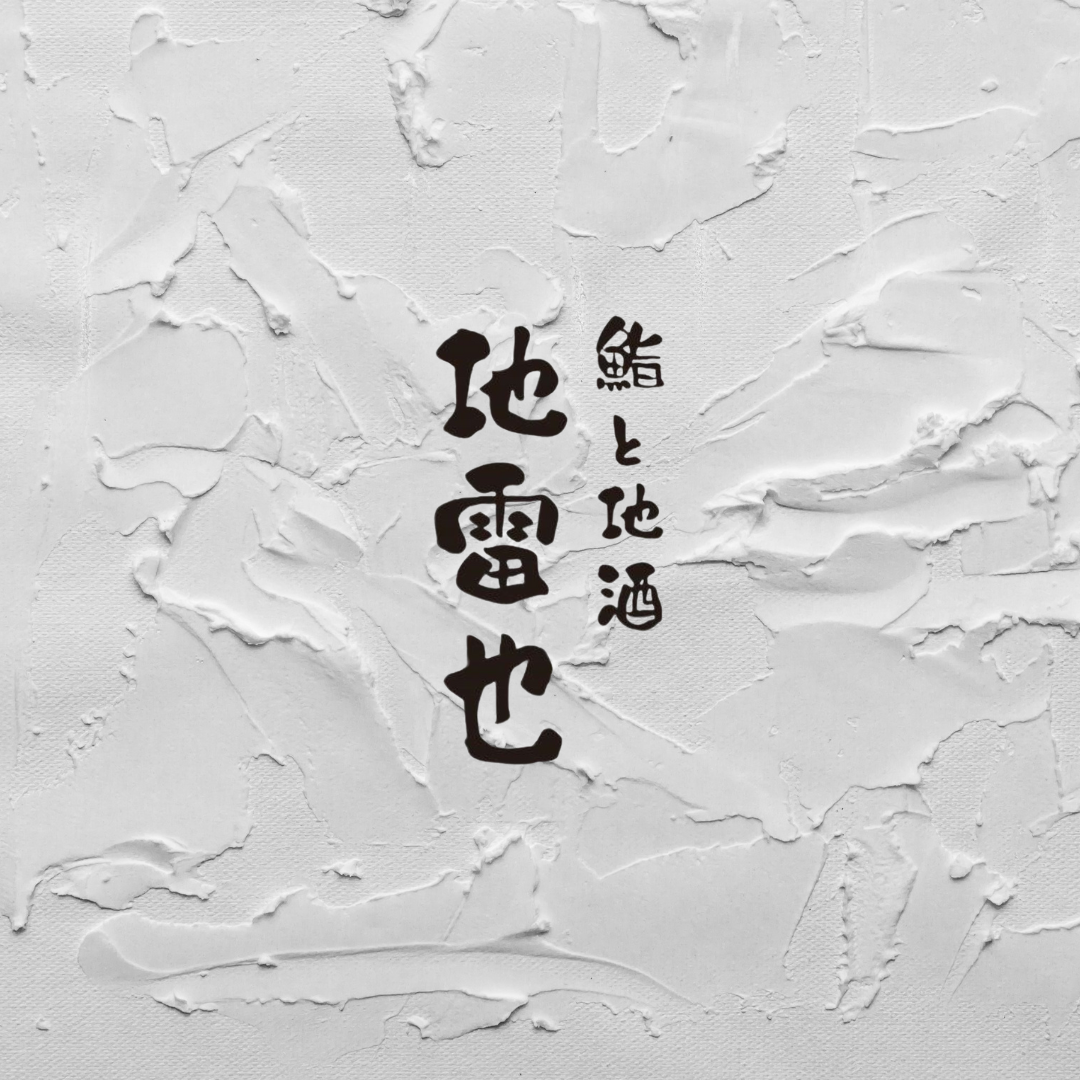 鮨と地酒
地雷也